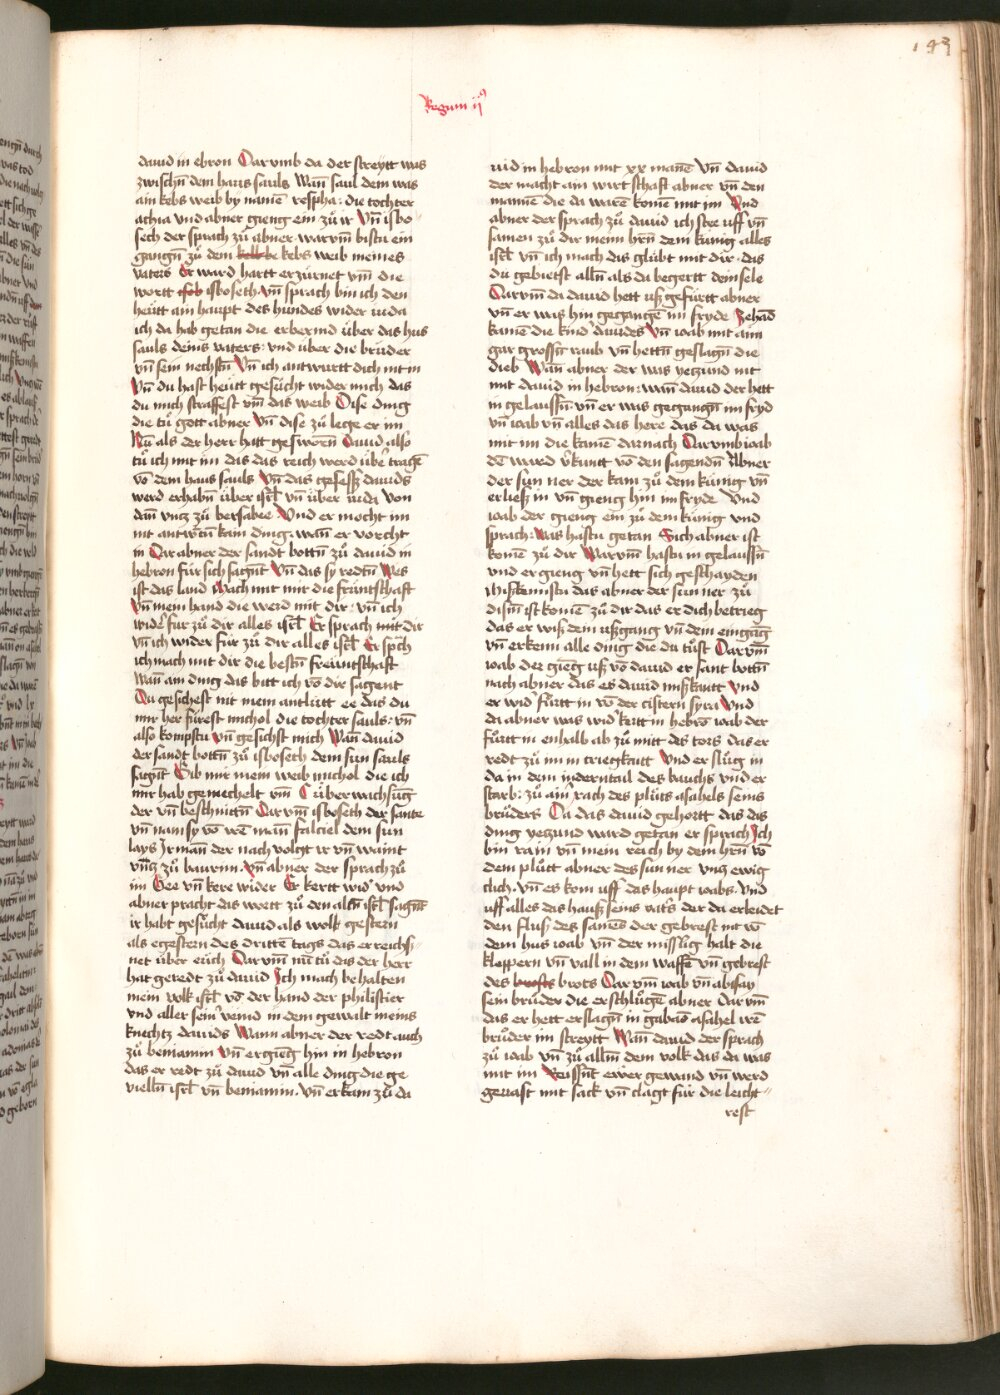 143
Regum ij
dauid in ebron Darumb da der streytt was
zwischn̄ dem haus sauls Wan̄ saul dem was
ain kebs weib by namē respha: die tochter
achia vnd abner gieng ein zů ir Vn̄ isbo
sech der sprach zů abner warvm̄ bistu ein
gangn̄ zů dem kebs weib meines
vaters Er ward hartt erzürnet vm̄ die
wortt isboseth Vn̄ sprach bin ich den
heütt am haupt des hundes wider iuda
ich da hab getan die erbermd über das hus
sauls deins vaters: vnd über die brüder
vn̄ sein nechstn̄ Vn̄ ich antwurtt dich nit in
Vn̄ du hast heütt gesücht wider mich das
du mich straffest vm̄ das weib Dise ding
die tů gott abner Vn̄ dise zů lege er im
Nů als der herr hatt gesworen Dauid also
tů ich mit im das das reich werd übē tragē
vō dem haus sauls Vn̄ das gesessz dauids
werd erhabn̄ über isrl̄ vn̄ über iuda von
dan̄ vntz zů bersabee Vnd er mocht im
nit antwrtn̄ kain ding. wan̄ er vorcht
in Dar abner der sandt bottn̄ zů dauid in
hebron für sich sagent Vn̄ das sy redtn̄ Wes
ist das land Mach mit mir die früntschaft
Vn̄ mein hand die werd mit dir: vn̄ ich
widē fur zů dir alles isrl̄ Er sprach mit dir
vn̄ ich wider für zů dir alles isrl̄ Er spch̄
ich mach mit dir die bestn̄ freüntschaft
Wan̄ ain ding das bitt ich vō dir sagent
Du gesichest nit mein antlütt ee das du
mir her fürest michol die tochter sauls: vn̄
also kompstu vn̄ gesichst mich Wan̄ dauid
der sandt bottn̄ zů isboseth dem sun sauls
sagn̄t Gib mir mein weib michol die ich
mir hab gemechelt vm̄ C überwachsūg
der vn̄ beschnittn̄ Darvm̄ isboseth der sante
vn̄ nam sy vō irē man̄ falciel dem sun
lays Ir man̄ der nach volgt ir vn̄ waint
vn̄tz zů baurim. vn̄ abner der sprach zů
im Gee vn̄ kere wider Er kertt widʼ vnd
abner pracht das wortt zů den altn̄ isrl̄ sagn̄t
ir habt gesücht dauid als wolt gestern
als egestern des drittē tags das er reichs
net über eüch Darvm̄ nū tů das der herr
hat geredt zů dauid Ich mach behalten
mein volk isrl̄ vō der hand der philistier
vnd aller seinʼ veind in dem gewalt meins
knechtz dauids Wann abner der redt auch
zů beniamin Vn̄ er gieng hin in hebron
das er redt zů dauid vn̄ alle ding die ge
vielln̄ isrl̄ vn̄ beniamin. vn̄ er kam zů da
uid in hebron mit xx manē Vn̄ dauid
der macht ain wirtschaft abner vn̄ den
mannē die da warē komē mit im Vnd
abner der sprach zů dauid ich stee uff vn̄
samen zů dir meim hrn̄ dem künig alles
isrl̄ vn̄ ich mach das glübt mit dir. das
du gebietst alln̄ als da begertt dein sele
Darvm̄ da dauid hett usz gefürtt abner
vn̄ er was hin gegangē im fryde Zehād
kamē die kind dauides Vn̄ ioab mit aim
gar grossn̄ raub vn̄ hettn̄ geslagn̄ die
dieb Wan̄ abner der was yetzund nit
mit dauid in hebron: wan̄ dauid der hett
in gelaussn̄. vn̄ er was gegangn̄ im fryd
vn̄ ioab vn̄ alles das here das da was
mit im die kamē darnach Darumb ioab
dē ward v̓kuntt vō den sagendn̄ Abner
der sun ner der kam zů dem künig vn̄
er liesz in vn̄ gieng hin im fryde Vnd
ioab der gieng ein zů dem künig vnd
sprach: Was hastu getan Sich abner ist
komē zů dir Warvm̄ hastu in gelaussn̄
vnd er gieng vn̄ hett sich geschayden
Miszkennistu das abner der sun ner zů
dism̄ ist komē zů dir das er dich betrieg
das er wisz dem uszgang vn̄ dem eingāg
vn̄ erkenn alle ding die du tůst Darvm̄
ioab der giēg usz vō dauid er sant bottn̄
nach abner das es dauid miszkantt Vnd
er widʼ fürtt in vō der cistern syra Vnd
da abner was widʼ kertt in hebrō ioab der
fůrtt in enhalb ab zů mitt des tors das er
redt zů im in triegkaitt Vnd er slůg in
da in dem inderntail des bauchs vnd er
starb: zů ainʼ rach des plůts asahels seins
brůders Da das dauid gehortt das das
ding yetzund ward getan er sprach Ich
bin rain vn̄ mein reich by dem hrn̄ vō
dem plůtt abner des sun ner vntz ewig
clich. vn̄ es kom uff das haupt ioabs. Vnd
uff alles das hausz seins vatʼs der da erleidet
den flusz des samēs der gebrest nit vō
dem hus ioab vn̄ der misslig halt die
kloppern vn̄ vall in dem waffē vn̄ gebrest
des brots Darvm̄ ioab vn̄ abisay
sein brüder die erschlůgē abner Darvm̄
das er hett erslagn̄ in gabaō asahel irē
brůder im streytt Wan̄ dauid der sprach
zů ioab vn̄ zů allm̄ dem volk das da was
mit im Reissn̄t ewer gewand vn̄ werd
gevast mit sack vn̄ clagt für die leicht
rest